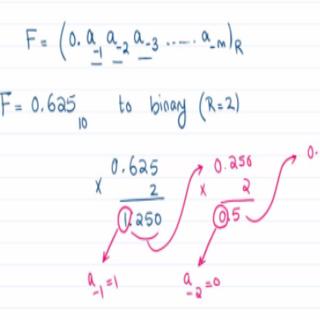 F = (0. a₋₁ a₋₂ a₋₃ ..... a₋ₘ)R
F = 0.625₁₀ to binary (R=2)
0.625 0.250 0.
x 2 x 2
1.250 0.5
a₋₁=1 a₋₂=0